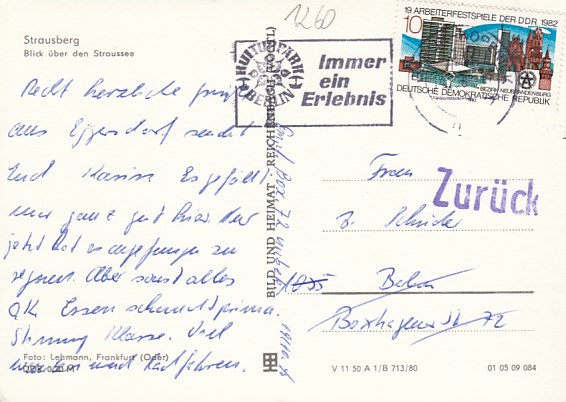 1260
Strausberg
Blick über den Straussee
Recht herzliche Grüße
aus Eggersdorf sendet
Euch Karin. Es gefällt
mir ganz gut hier. Nur
jetzt hat es angefangen zu
regnen. Aber sonst alles
OK. Essen schmeckt prima.
Stimmung Klasse. Viel
wandern und Radfahren.
Foto: Lehmann, Frankfurt (Oder)
BILD UND HEIMAT REICHENBACH
Box 72
KULTURPARK
BERLIN
Immer
ein
Erlebnis
19. ARBEITERFESTSPIELE DER DDR 1982
10
BEZIRK NEUBRANDENBURG
DEUTSCHE DEMOKRATISCHE REPUBLIK
Zurück
Frau
1035 Berlin
Boxhagener Str. 72
V 11 50 A 1/B 713/80
01 05 09 084